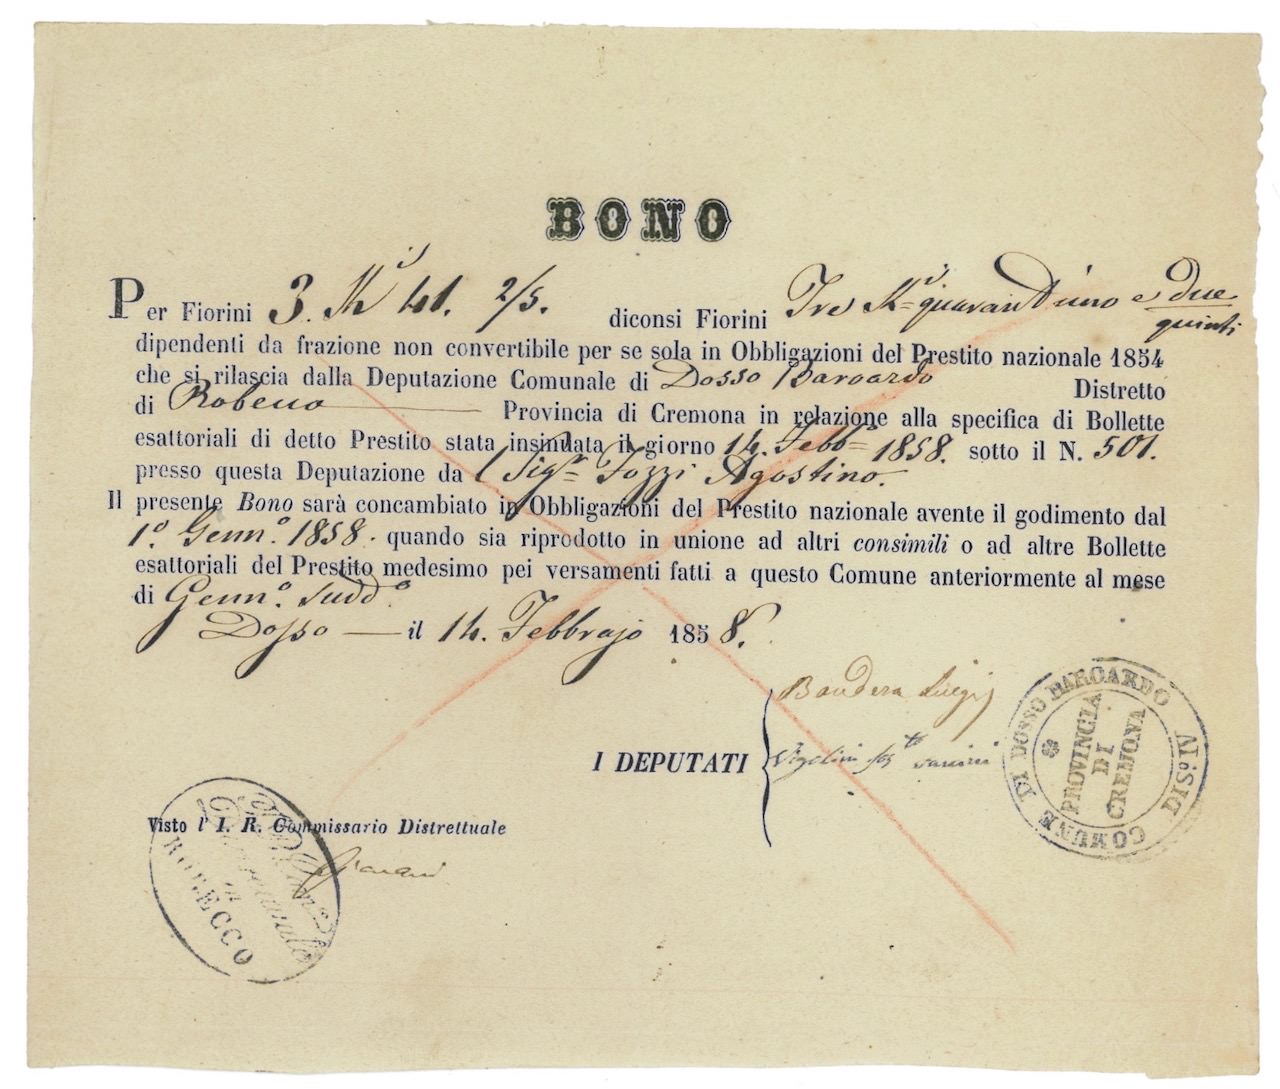 BONO
Per Fiorini 3. Kⁱ 41. 2/5. diconsi Fiorini Tre Kⁱ quarantuno e due quinti
dipendenti da frazione non convertibile per se sola in Obbligazioni del Prestito nazionale 1854
che si rilascia dalla Deputazione Comunale di Dosso Baroardo Distretto
di Robecco Provincia di Cremona in relazione alla specifica di Bollette
esattoriali di detto Prestito stata insinuata il giorno 14. Febbº 1858. sotto il N. 501.
presso questa Deputazione da l Sigr Tozzi Agostino.
Il presente Bono sarà concambiato in Obbligazioni del Prestito nazionale avente il godimento dal
1º. Gennº. 1858. quando sia riprodotto in unione ad altri consimili o ad altre Bollette
esattoriali del Prestito medesimo pei versamenti fatti a questo Comune anteriormente al mese
di Gennº. suddº.
Dosso il 14. Febbrajo 1858.
Bandera Luigi
I DEPUTATI
COMUNE DI DOSSO BAROARDO DIS. VI
PROVINCIA
DI
CREMONA
Visto l' I. R. Commissario Distrettuale
Distrettuale
in
ROBECCO